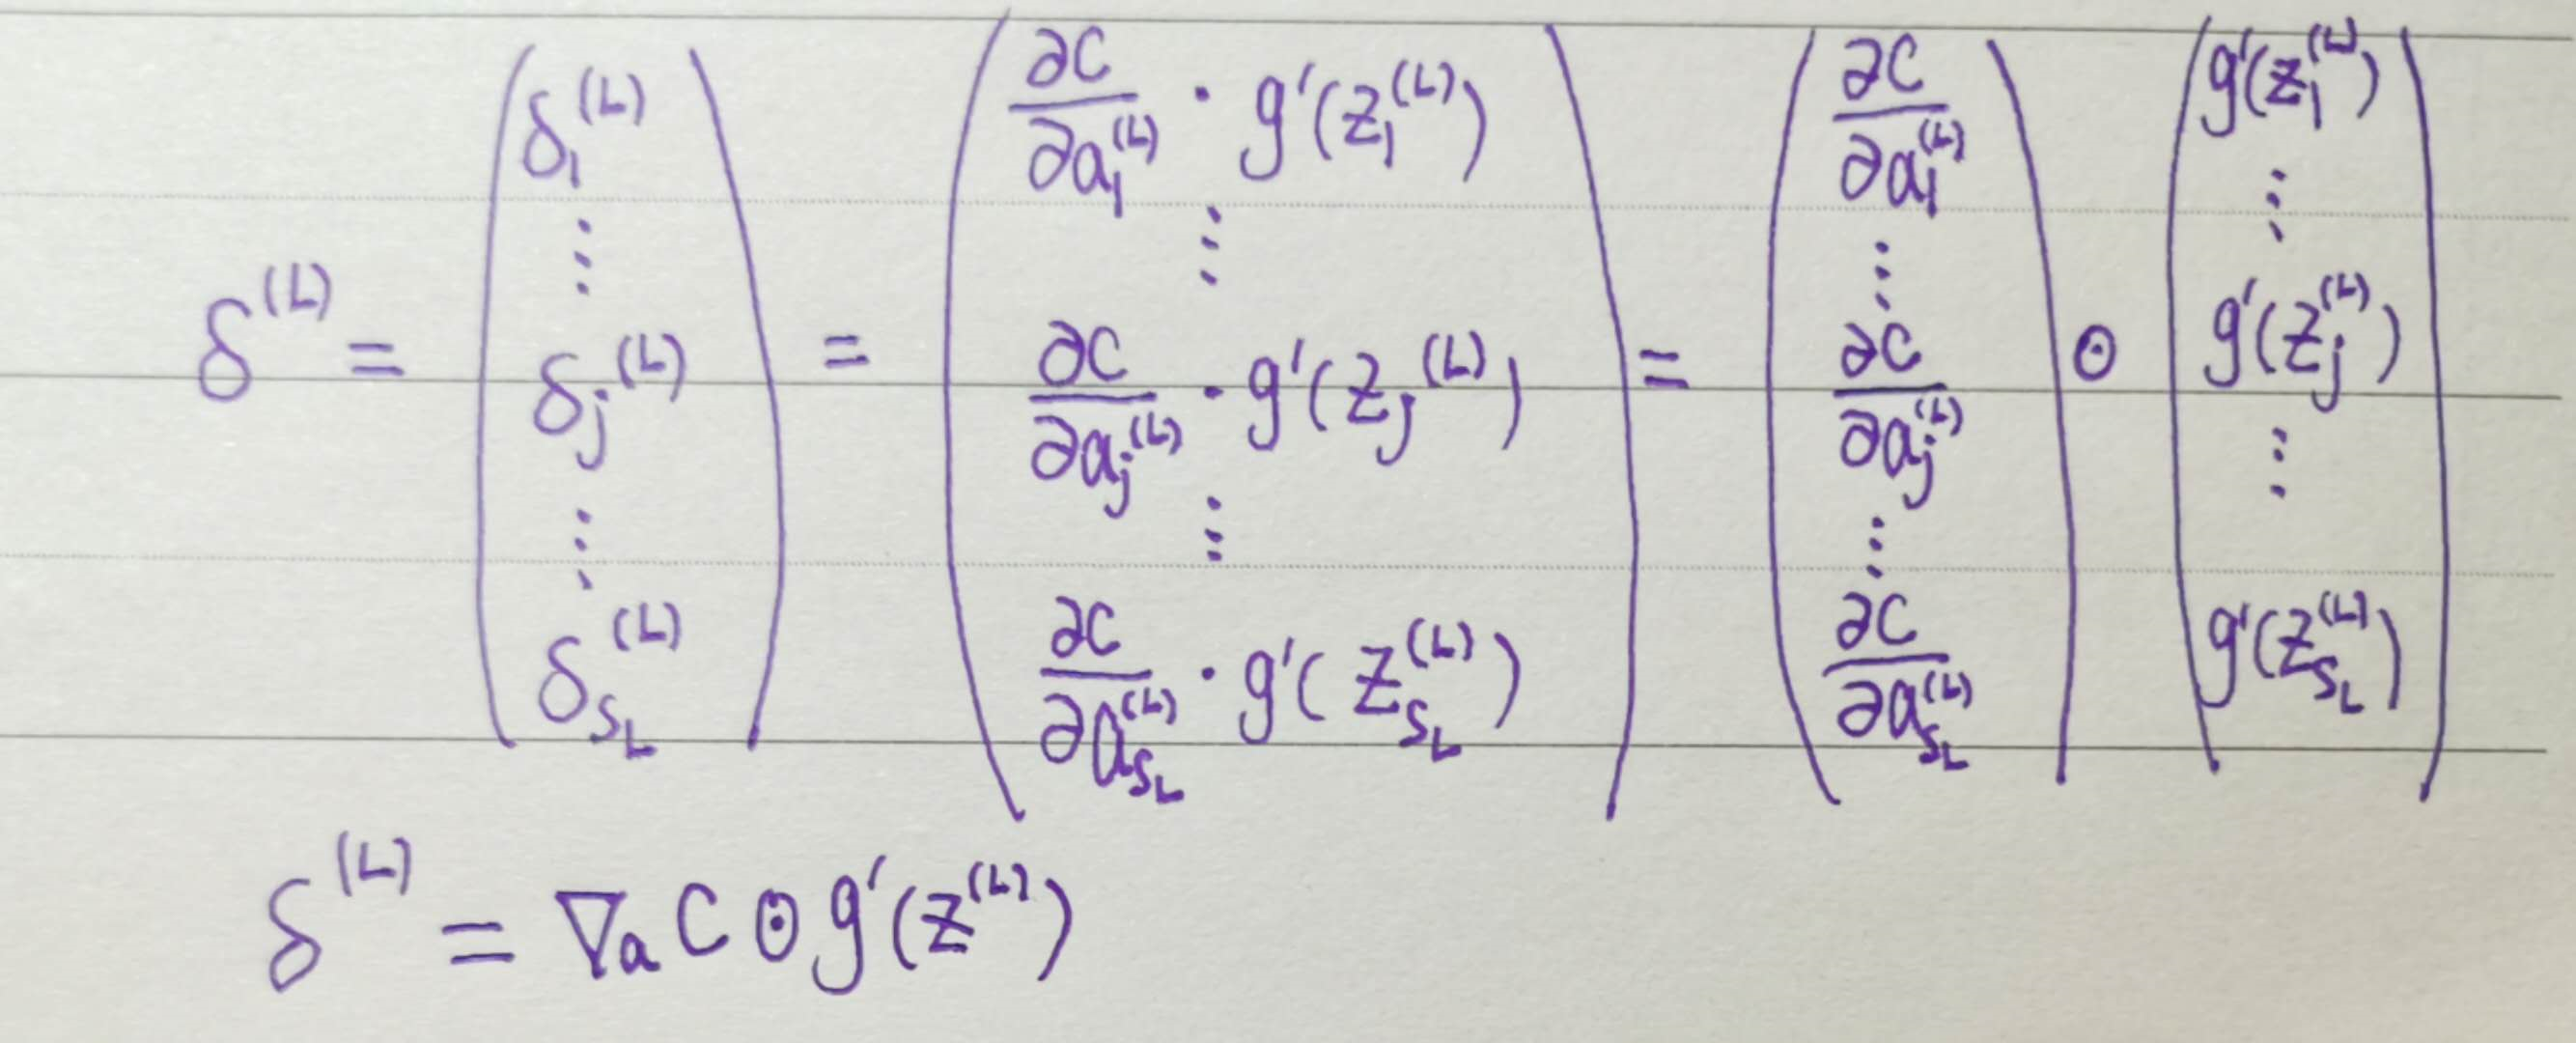 $\delta^{(L)} = \begin{pmatrix} \delta_1^{(L)} \\ \vdots \\ \delta_j^{(L)} \\ \vdots \\ \delta_{S_L}^{(L)} \end{pmatrix} = \begin{pmatrix} \frac{\partial C}{\partial a_1^{(L)}} \cdot g'(z_1^{(L)}) \\ \vdots \\ \frac{\partial C}{\partial a_j^{(L)}} \cdot g'(z_j^{(L)}) \\ \vdots \\ \frac{\partial C}{\partial a_{S_L}^{(L)}} \cdot g'(z_{S_L}^{(L)}) \end{pmatrix} = \begin{pmatrix} \frac{\partial C}{\partial a_1^{(L)}} \\ \vdots \\ \frac{\partial C}{\partial a_j^{(L)}} \\ \vdots \\ \frac{\partial C}{\partial a_{S_L}^{(L)}} \end{pmatrix} \odot \begin{pmatrix} g'(z_1^{(L)}) \\ \vdots \\ g'(z_j^{(L)}) \\ \vdots \\ g'(z_{S_L}^{(L)}) \end{pmatrix}$
$\delta^{(L)} = \nabla_a C \odot g'(z^{(L)})$